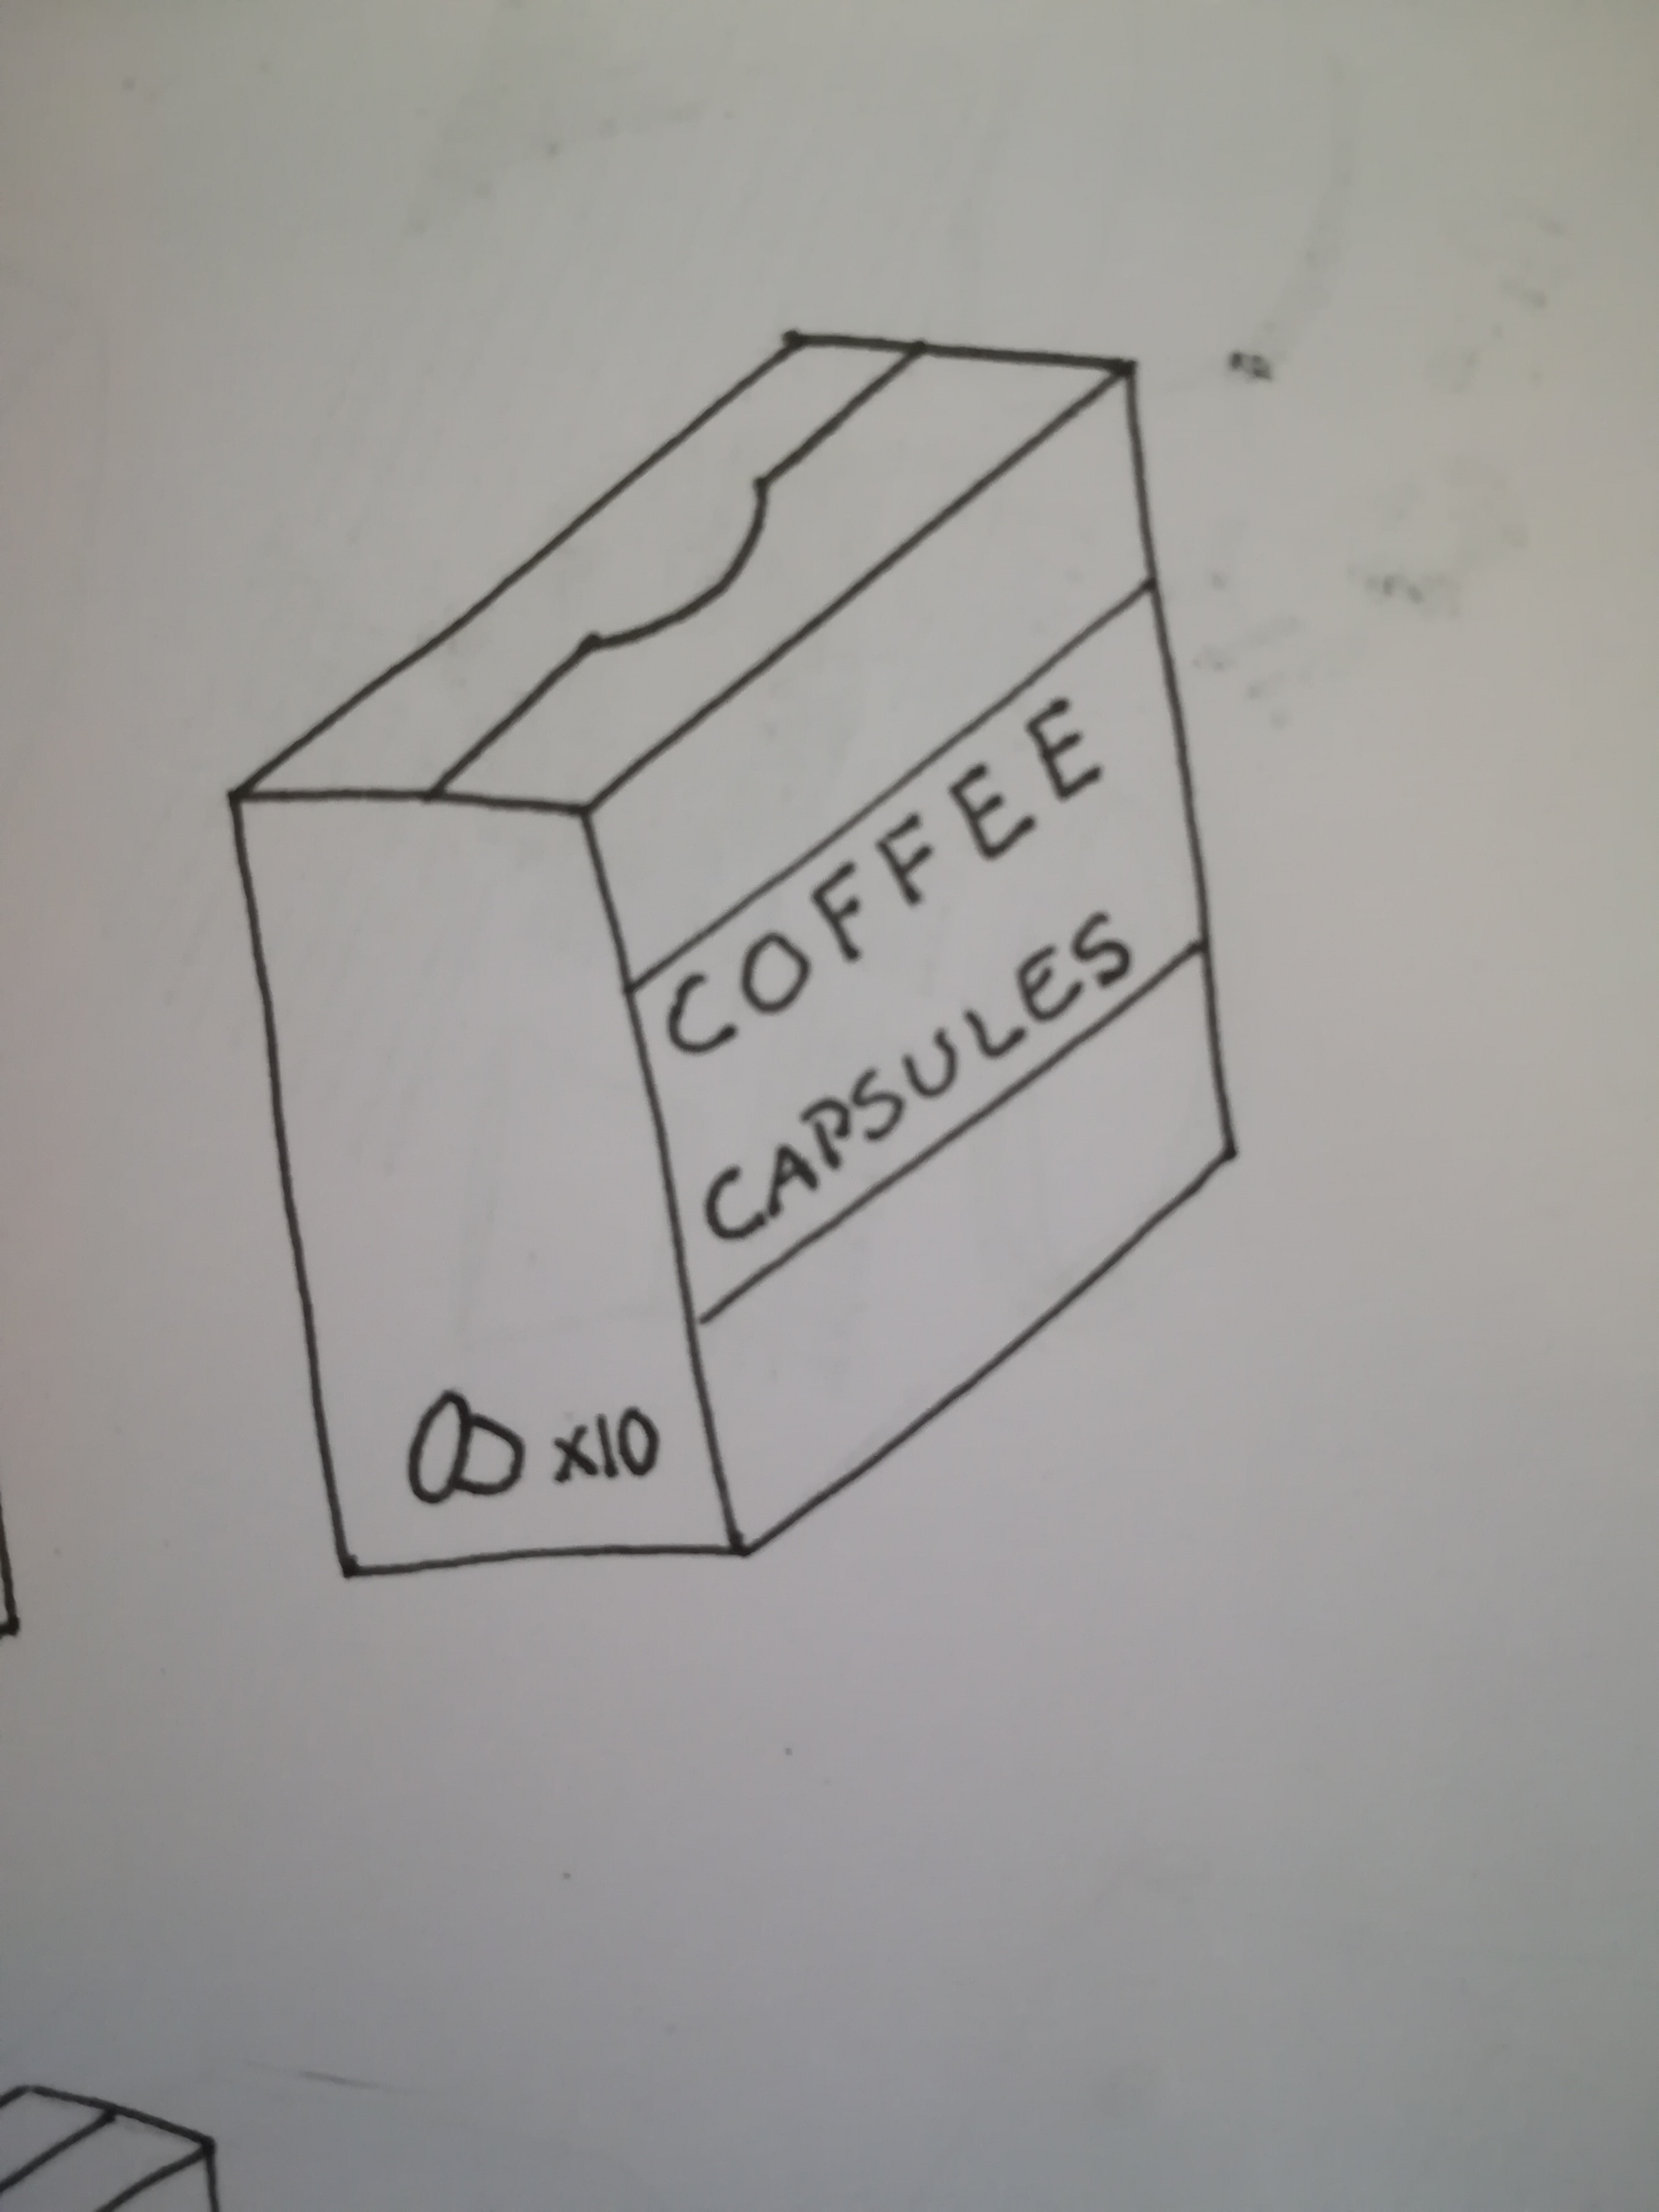 COFFEE
CAPSULES
x10